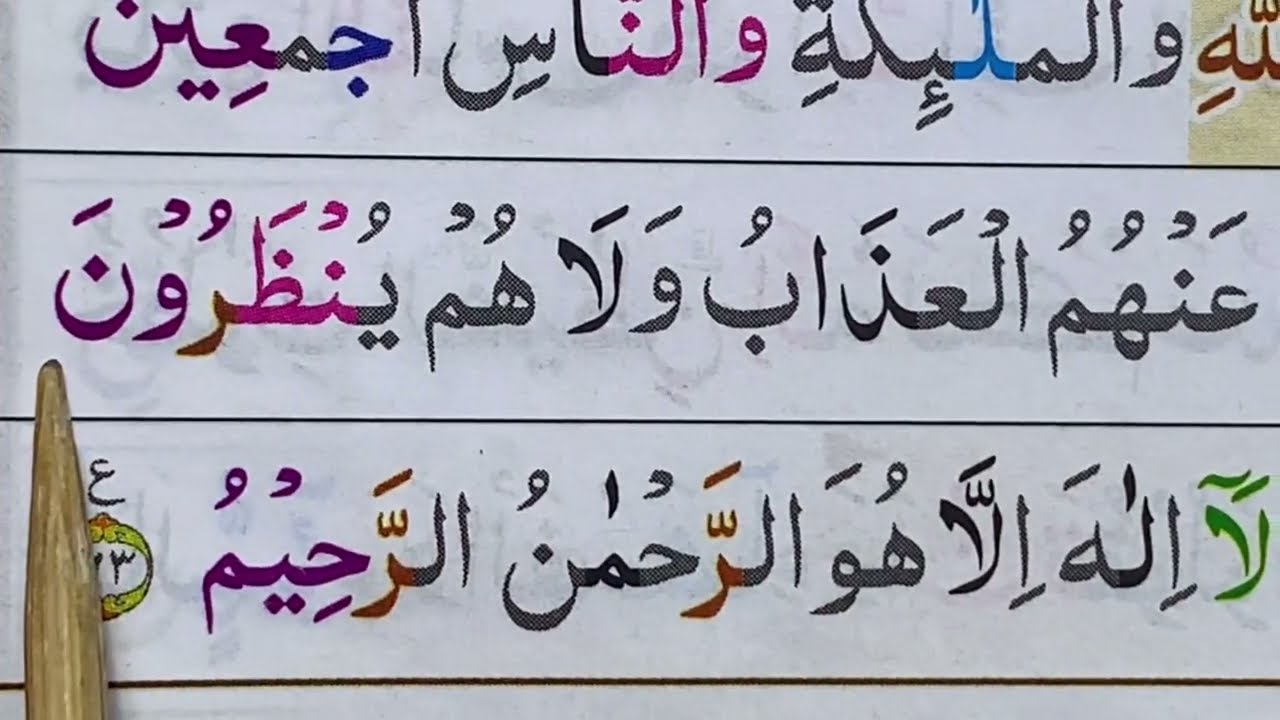 للهِ والملٰٓئِكةِ والنّاسِ اجمعِين
عَنْهُمُ الْعَذَابُ وَلَا هُمْ يُنْظَرُوْنَ
لَآ اِلٰهَ اِلَّا هُوَ الرَّحْمٰنُ الرَّحِيْمُ ع